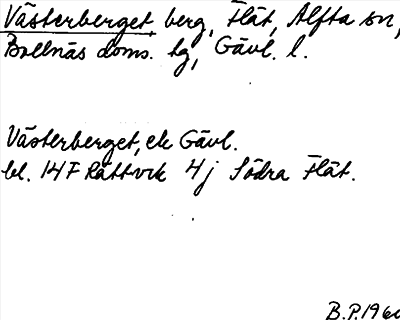 Västerberget, berg, Flät, Alfta sn,
Bollnäs doms. hg, Gävl. l.
Västerberget, ek Gävl.
bl. 14F Rättvik 4j Södra Flät.
B.P. 1960